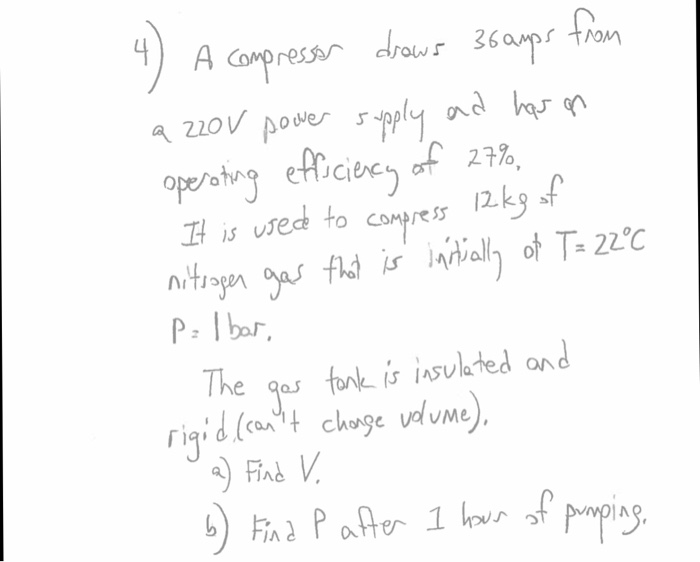 4) A compressor draws 36amps from
a 220V power supply and has an
operating efficiency of 27%.
It is used to compress 12kg of
nitrogen gas that is initially at T=22°C
P=1bar.
The gas tank is insulated and
rigid (can't change volume).
a) Find V.
b) Find P after 1 hour of pumping.